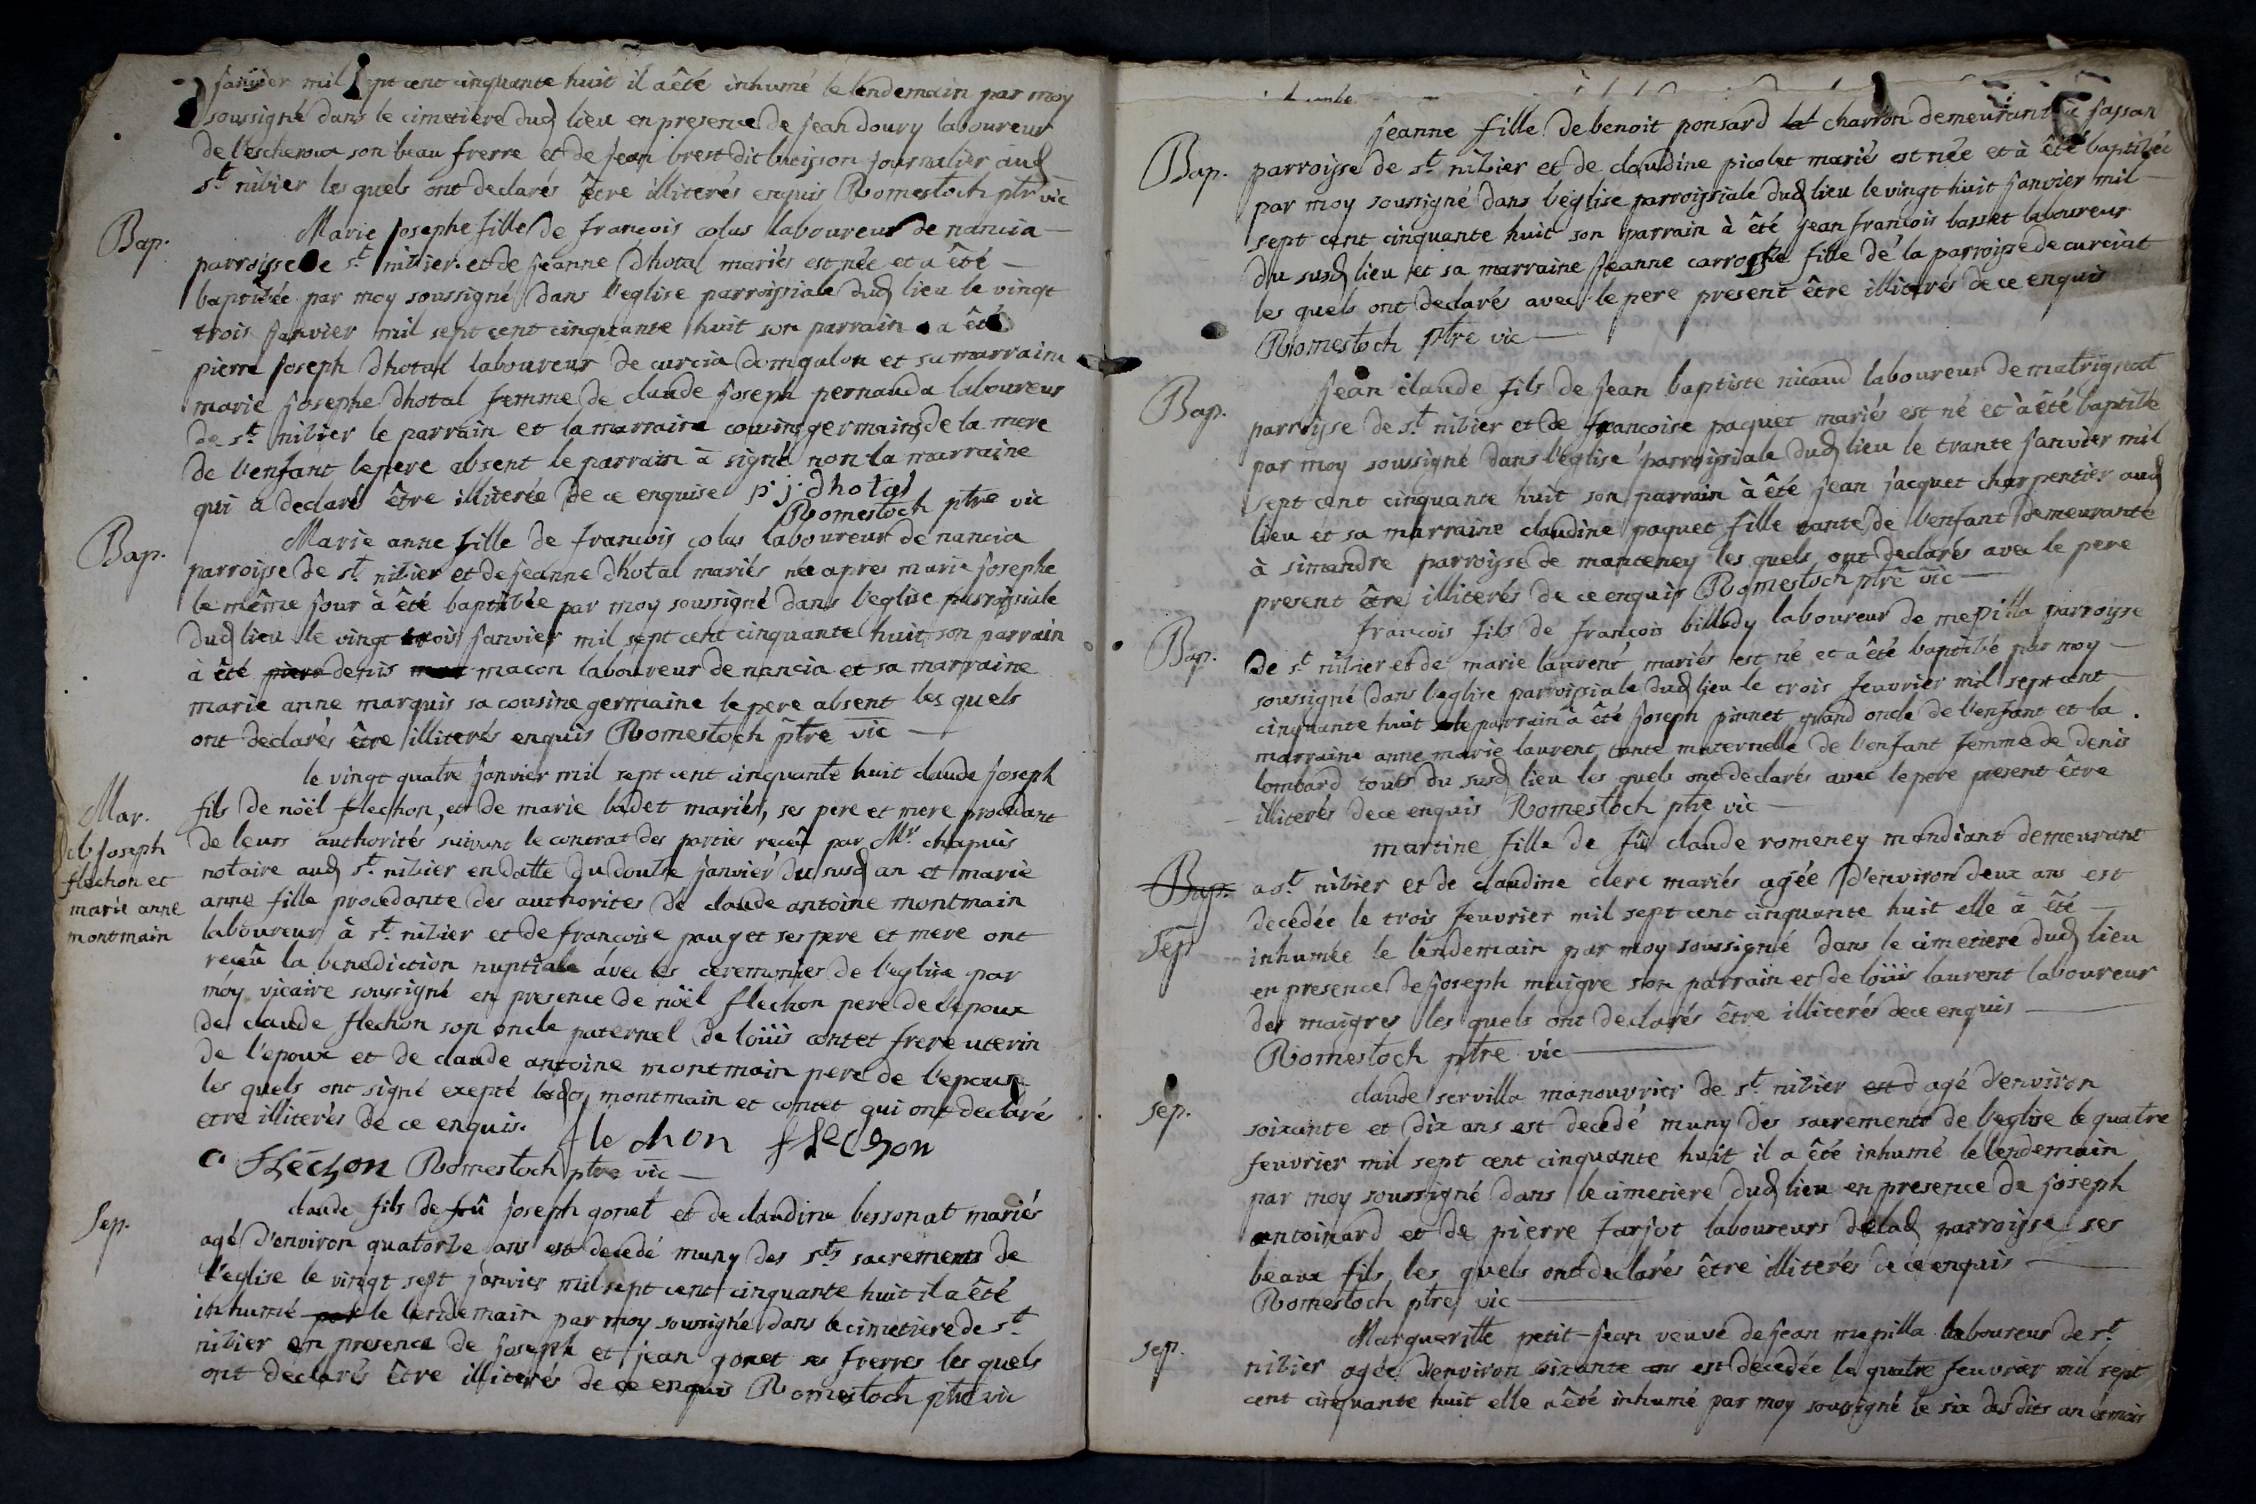 janvier mil sept cent cinquante huit il a êté inhumé le lendemain par moy
soussigné dans le cimetiere dud lieu en presence de jean doury laboureur
de l'escheroux son beau frerre et de jean brest dit buisson journalier aud
st nitier les quels ont declarés être illiterés enquis Romestoch ptre vic
Bap. Marie josephe fille de francois colus laboureur de nancia
parroisse de st nitier et de jeanne dhotal mariés est née et a êté
baptisée par moy soussigné dans l'eglise parroissiale dud lieu le vingt
trois janvier mil sept cent cinquante huit son parrain a êté
pierre joseph dhotal laboureur de curcia domgalon et sa marraine
marie josephe dhotal femme de claude joseph pernauda laboureur
de st nitier le parrain et la marraine cousins germains de la mere
de l'enfant le pere absent le parrain à signé non la marraine
qui a declaré être illiterée de ce enquise p. j. dhotal
Romestoch ptre vic
Bap. Marie anne fille de francois colus laboureur de nancia
parroisse de st nitier et de jeanne dhotal mariés née apres marie josephe
le même jour à êté baptisée par moy soussigné dans l'eglise parroissiale
dud lieu le vingt trois janvier mil sept cent cinquante huit son parrain
à êté piere denis macon laboureur de nancia et sa marraine
marie anne marquis sa cousine germaine le pere absent les quels
ont declarés être illiterés enquis Romestoch ptre vic
le vingt quatre janvier mil sept cent cinquante huit claude joseph
Mar. fils de nöel flechon, et de marie badet mariés, ses pere et mere procedant
cl. joseph de leurs authorités suivant le contrat des parties recêu par Mr. chapuis
flechon et notaire aud st nitier en datte du doutse janvier du susd an et marie
marie anne anne fille procedante des authorites de claude antoine montmain
montmain laboureur à st nitier et de francoise pauget ses pere et mere ont
recêu la benediction nuptiale avec les ceremonies de l'eglise par
moy vicaire soussigné en presence de nöel flechon pere de lepoux
de claude flechon son oncle paternel de loüis contet frere uterin
de l'epoux et de claude antoine montmain pere de l'epouse
les quels ont signé exepté lesdts montmain et contet qui ont declarés
etre illiterés de ce enquis. flechon flechon
C. flechon Romestoch ptre vic
Sep. claude fils de feû joseph gonet et de claudine bessonat mariés
agé d'environ quatorze ans est decedé muny des sts sacrements de
l'eglise le vingt sept janvier mil sept cent cinquante huit il a êté
inhumé par le lendemain par moy soussigné dans le cimetiere de st
nitier en presence de joseph et jean gonet ses frerres les quels
ont declarés être illiterés de ce enquis Romestoch ptre vic
jeanne fille de benoit ponsard lat charron demeurant à jassan
Bap. parroisse de st nitier et de claudine picolet mariés est née et à êté baptisée
par moy soussigné dans l'eglise parroissiale dud lieu le vingt huit janvier mil
sept cent cinquante huit son parrain à êté jean francois basset laboureur
du susd lieu et sa marraine jeanne fille de la parroisse de curciat
les quels ont declarés avec le pere present être illiterés de ce enquis
Romestoch ptre vic
Bap. jean claude fils de jean baptiste nicaud laboureur de matrignat
parroisse de st nitier et de francoise paquet mariés est né et à êté baptisé
par moy soussigné dans l'eglise parroissiale dud lieu le trante janvier mil
sept cent cinquante huit son parrain à êté jean jacquet charpentier aud
lieu et sa marraine claudine paquet fille tante de l'enfant demeurante
à simandre parroisse de manteney les quels ont declarés avec le pere
present être illiterés de ce enquis Romestoch ptre vic
Bap. francois fils de francois billody laboureur de mepilla parroisse
de st nitier et de marie laurent mariés est né et a êté baptisé par moy
soussigné dans l'eglise parroissiale dud lieu le trois feuvrier mil sept cent
cinquante huit le parrain à êté joseph pinnet grand oncle de l'enfant et la
marraine anne marie laurent tante maternelle de l'enfant femme de denis
lombard touts du susd lieu les quels ont declarés avec le pere present être
illiterés de ce enquis Romestoch ptre vic
martine fille de fû claude romeney mandiant demeurant
Bap. a st nitier et de claudine clerc mariés agée d'environ deux ans est
decedée le trois feuvrier mil sept cent cinquante huit elle à êté
Sep inhumée le lendemain par moy soussigné dans le cimetiere dud lieu
en presence de joseph maigre son parrain et de loüis laurent laboureur
des maigres les quels ont declarés être illiterés de ce enquis
Romestoch ptre vic
Sep. claude servilla manouvrier de st nitier est d agé d'environ
soixante et dix ans est decedé muny des sacrements de l'eglise le quatre
feuvrier mil sept cent cinquante huit il a êté inhumé le lendemain
par moy soussigné dans le cimetiere dud lieu en presence de joseph
antoinard et de pierre farjot laboureurs de lad parroisse ses
beaux fils les quels ont declarés être illiterés de ce enquis
Romestoch ptre vic
Sep. Margueritte petit-jean veuve de jean mepilla laboureur de st
nitier agée d'environ sixante ans est decedée le quatre feuvrier mil sept
cent cinquante huit elle a êté inhumé par moy soussigné le six des dits an et mois